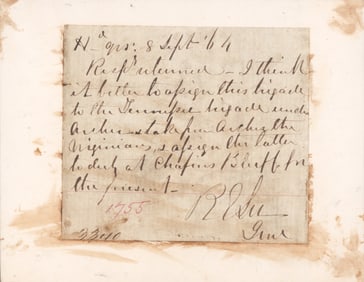 Hd qrs: 8 Sept '64
Respy returned - I think
it better to assign this brigade
to the Tennessee brigade under
Archer & take from Archer the
Virginians, & assign the latter
to duty at Chafins Bluff for
the present -
R E Lee
Genl
1755